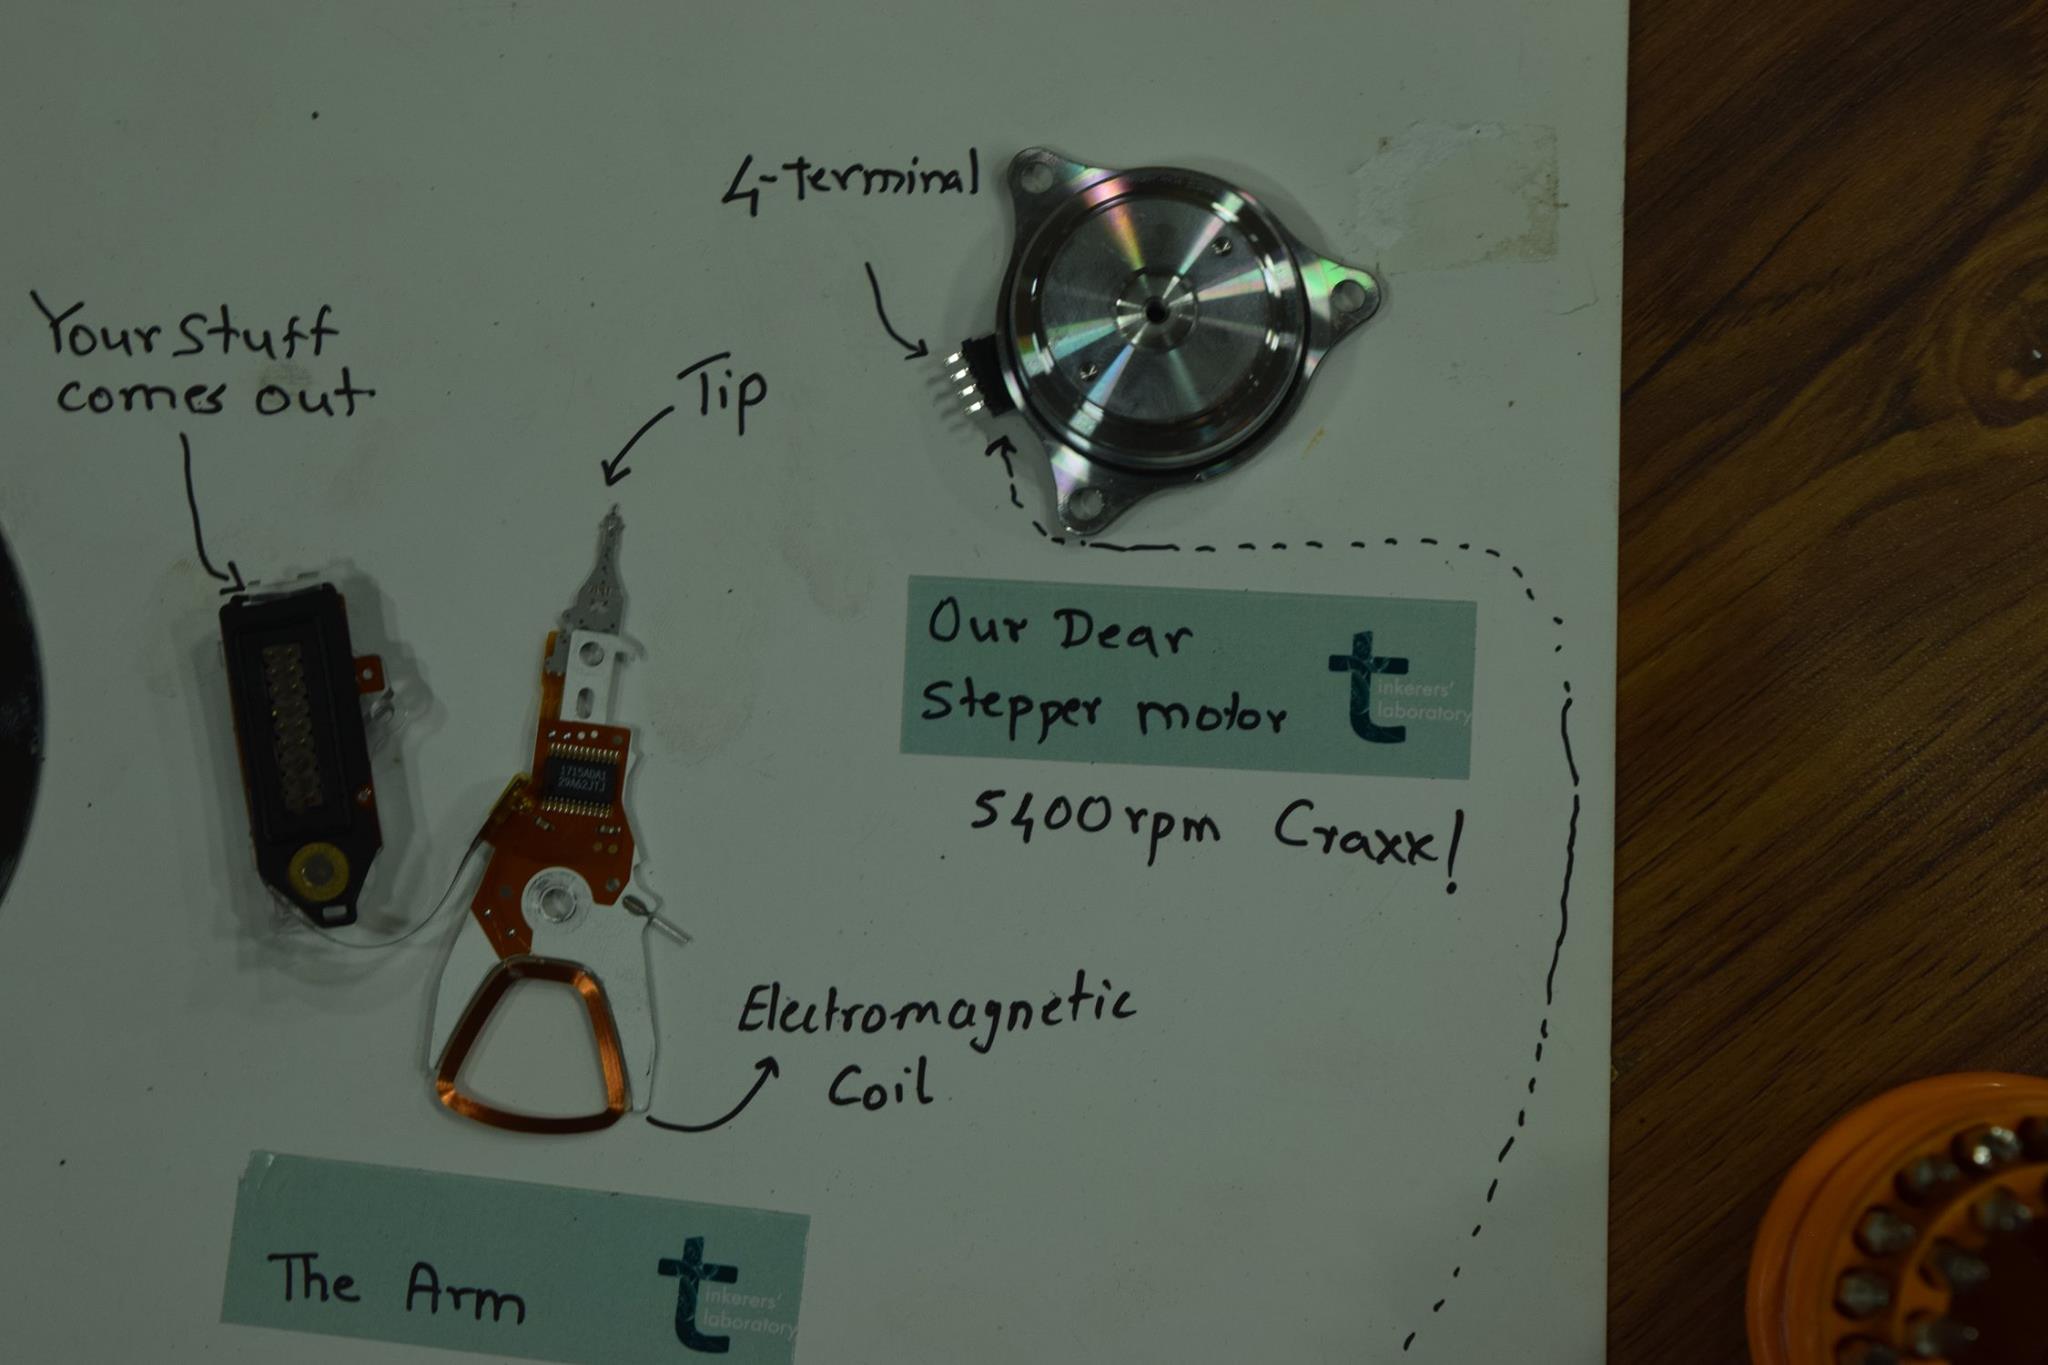 4-terminal
Your Stuff
comes out
Tip
Our Dear
Stepper motor
tinkerers'
laboratory
5400rpm Craxx!
1715ADA1
29A62JTJ
Electromagnetic
Coil
The Arm
tinkerers'
laboratory